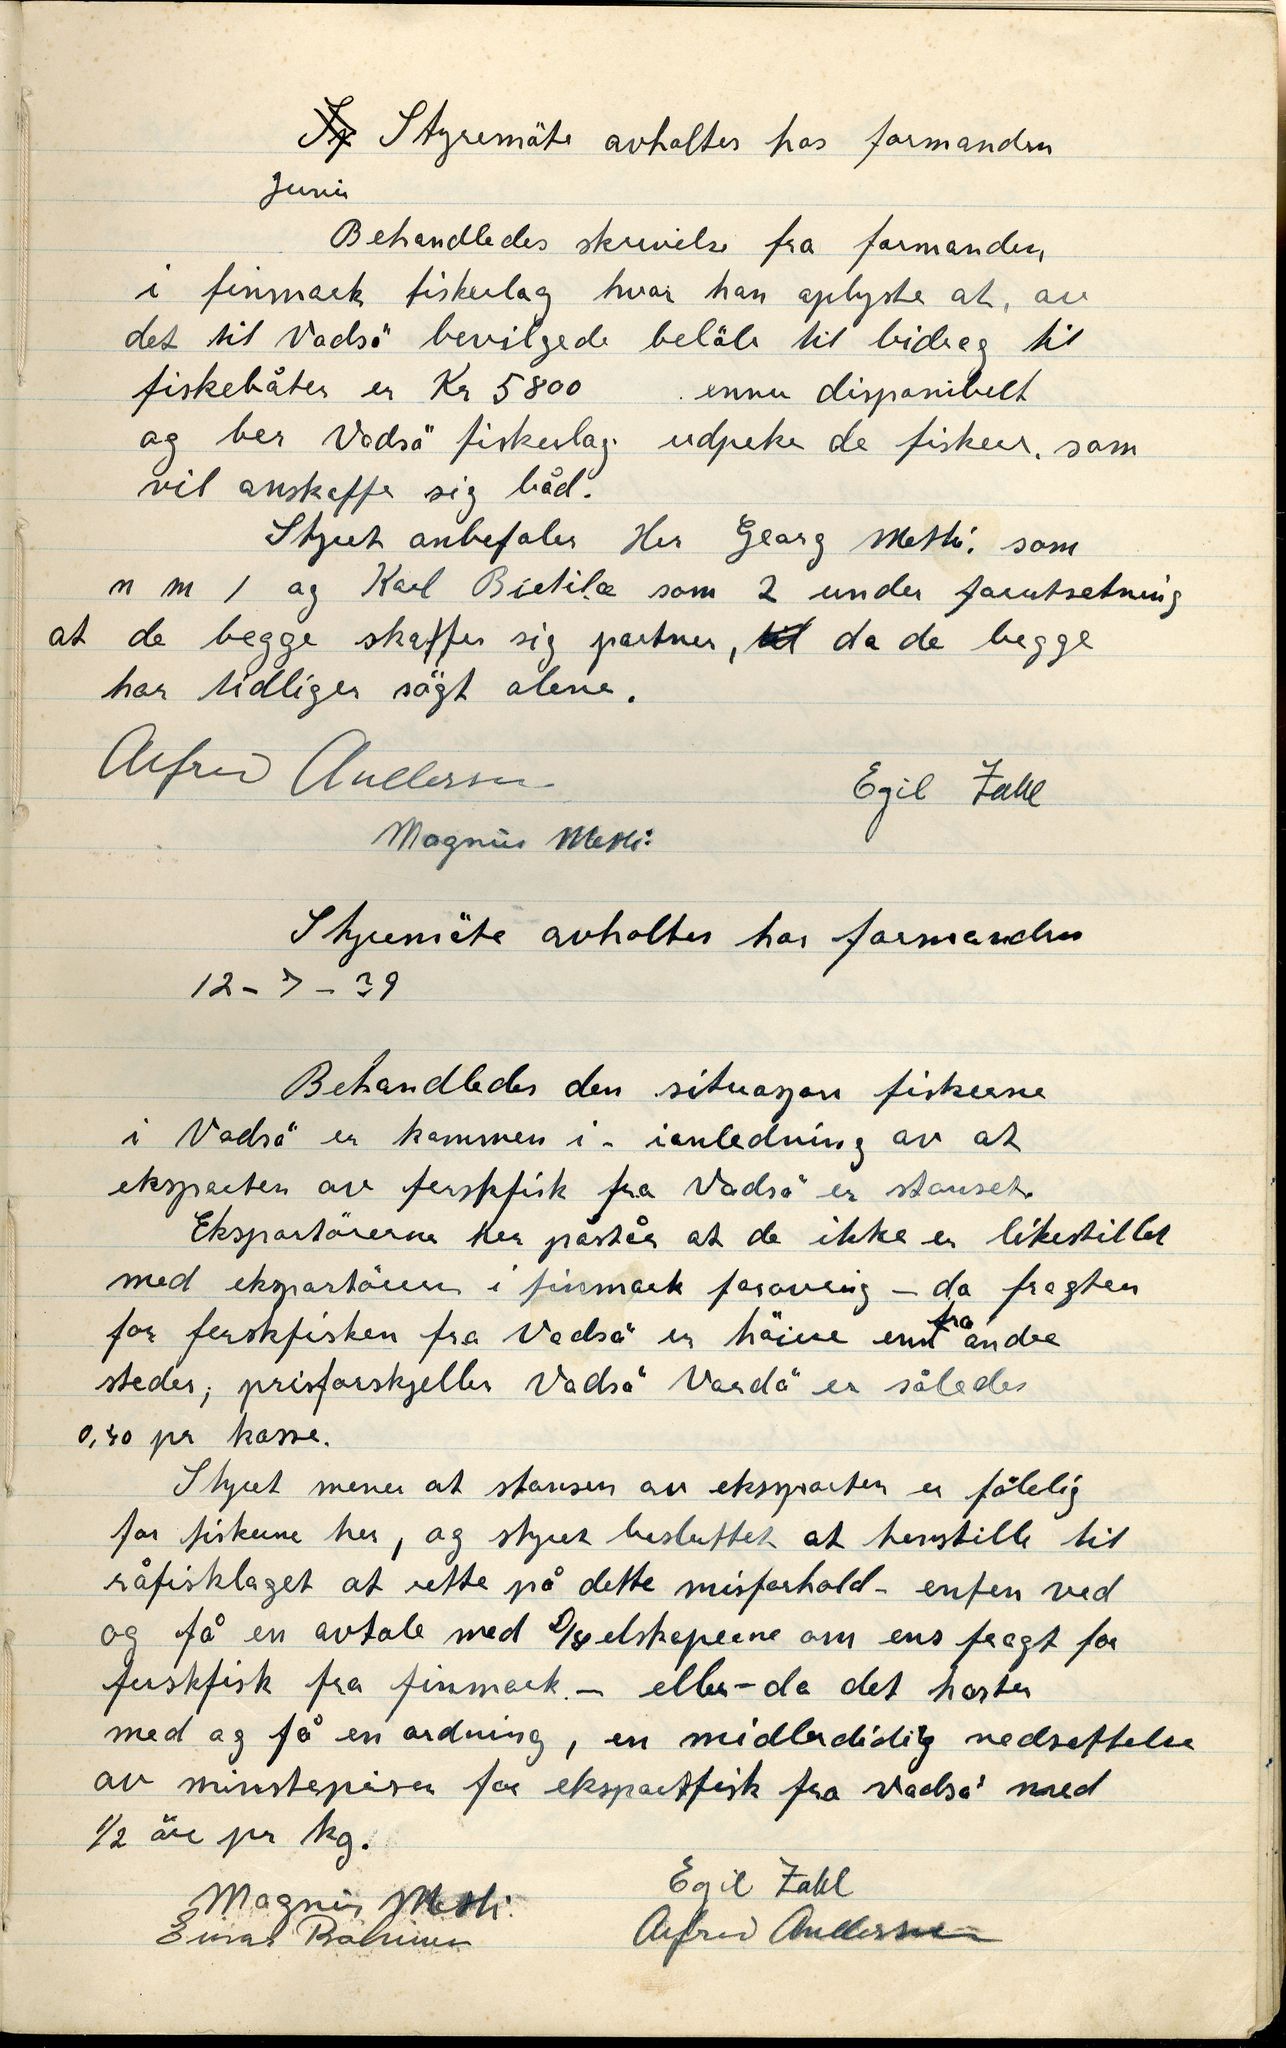 Styremöte avholtes hos formanden
Juni
Behandledes skrivelse fra formanden
i finmark fiskerlag hvor han oplyste at, av
det til Vadsö bevilgede belöb til bidrag til
fiskebåter er Kr 5800 ennu disponibelt
og ber Vadsö fiskerlag udpeke de fiskere, som
vil anskaffe sig båd.
Styret anbefaler Her Georg Metti. som
n m 1 og Karl Bietilæ som 2 under forutsetning
at de begge skaffer sig partner, da de begge
har tidliger sögt alene.
Alfred Andersen Egil Zahl
Magnus Metti
Styremöte avholtes hos formanden
12-7-39
Behandledes den situasjon fiskerne
i Vadsö er kommen i - ianledning av at
eksporten av ferskfisk fra Vadsö er stanset.
Eksportörerne her påstår at de ikke er likestillet
med eksportören i finmark forovrig - da fragten
for ferskfisken fra Vadsö er höiere enn fra andre
steder, prisforskjellen Vadsö Vardö er således
0,40 pr kasse.
Styret mener at stansen av eksporten er fölelig
for fiskerne her, og styret besluttet at henstille til
råfisklaget at rette på dette misforhold - enten ved
og få en avtale med D/S selskaperne om ens fragt for
ferskfisk fra finmark. - eller - da det haster
med og få en ordning, en midlerdidig nedsettelse
av minsteprisen for eksportfisk fra Vadsö med
1/2 öre pr kg.
Magnus Metti. Egil Zahl
Einar Alfred Andersen